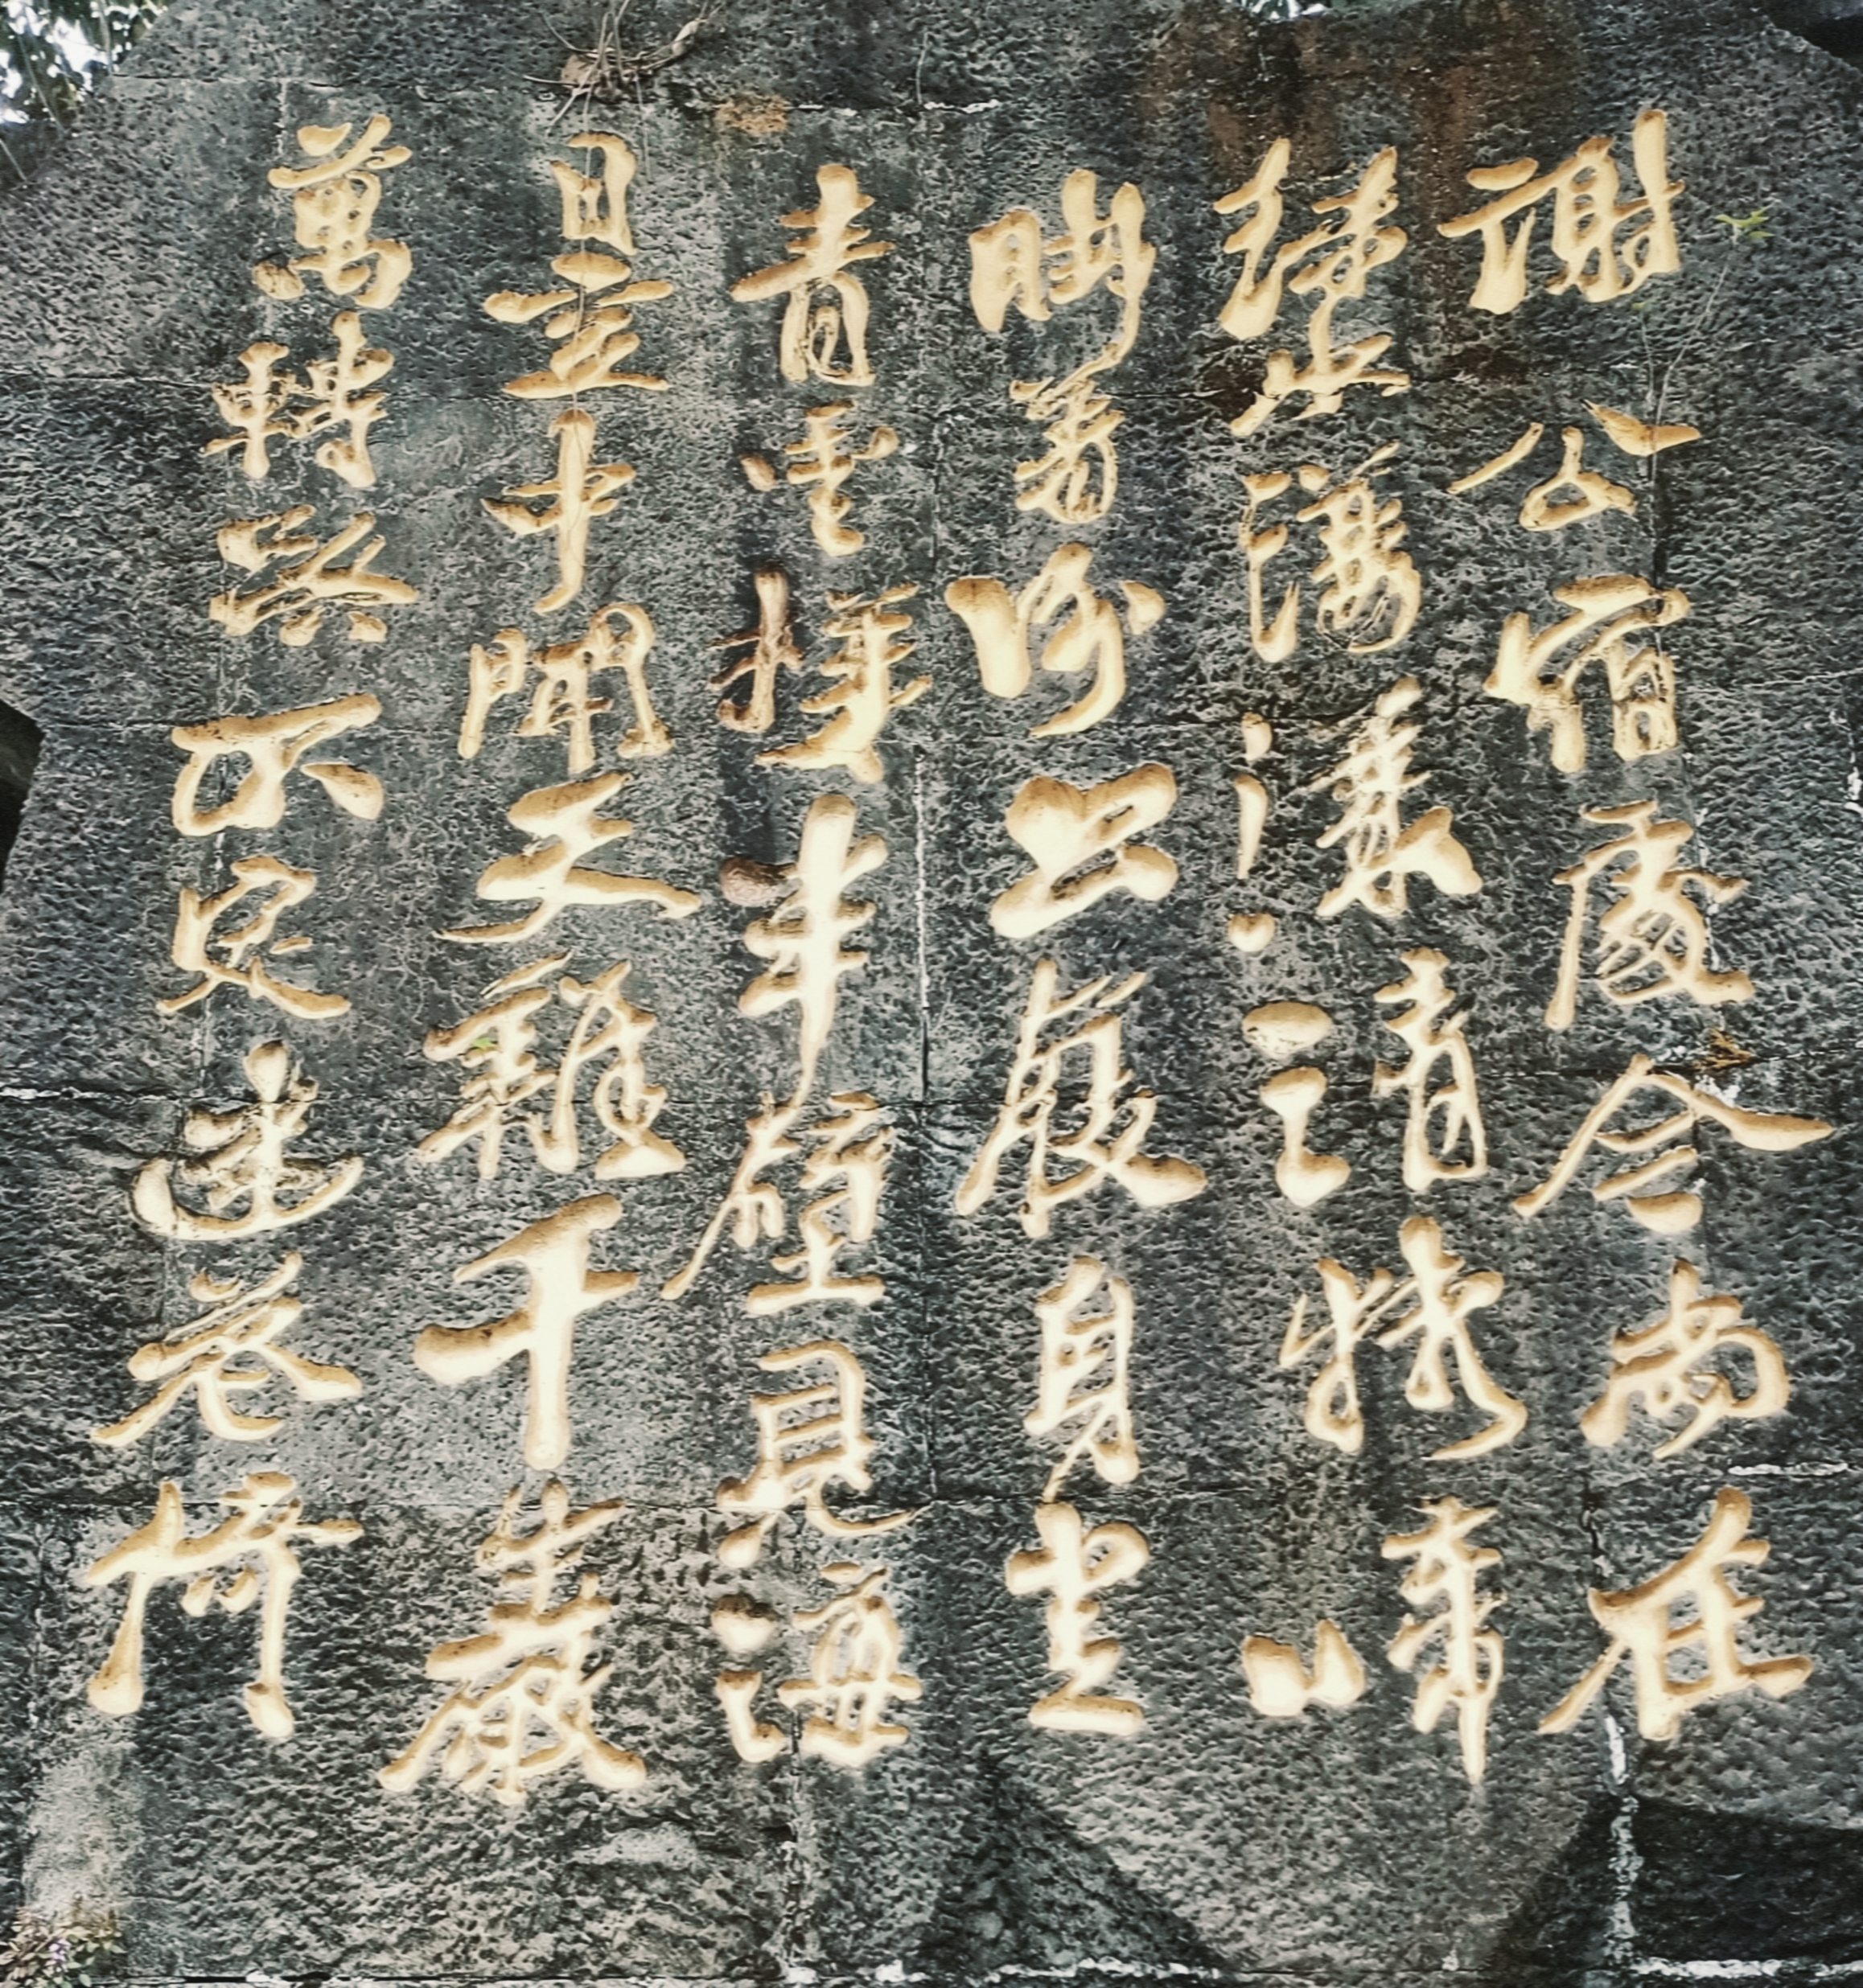 謝公宿處今尚在
綠水蕩漾清猿啼
腳著謝公屐身登
青雲梯半壁見海
日空中聞天雞千巖
萬轉路不定迷花倚